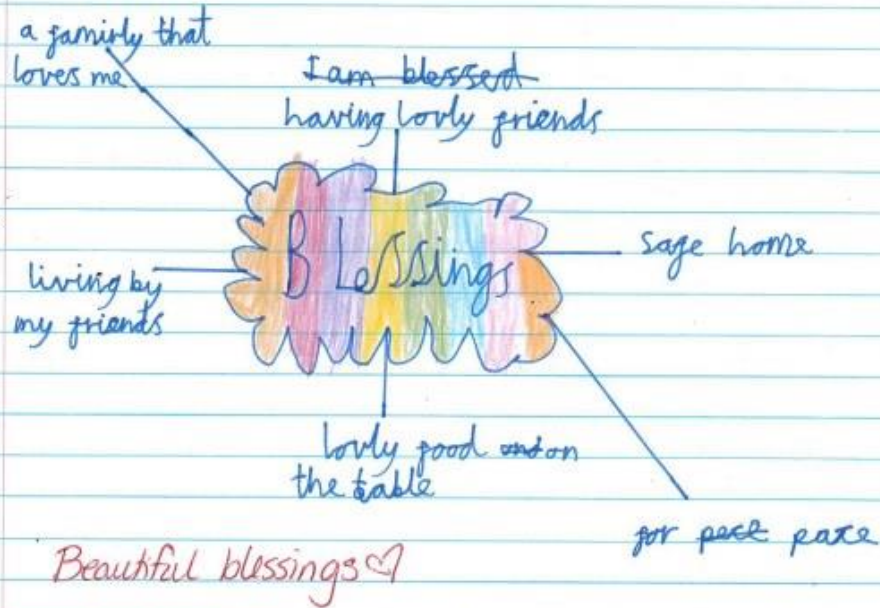 a famirly that
loves me
I am blessed
having lovly friends
Blessings
safe home
living by
my friends
lovly food and on
the table
for pece pace
Beautiful blessings♡